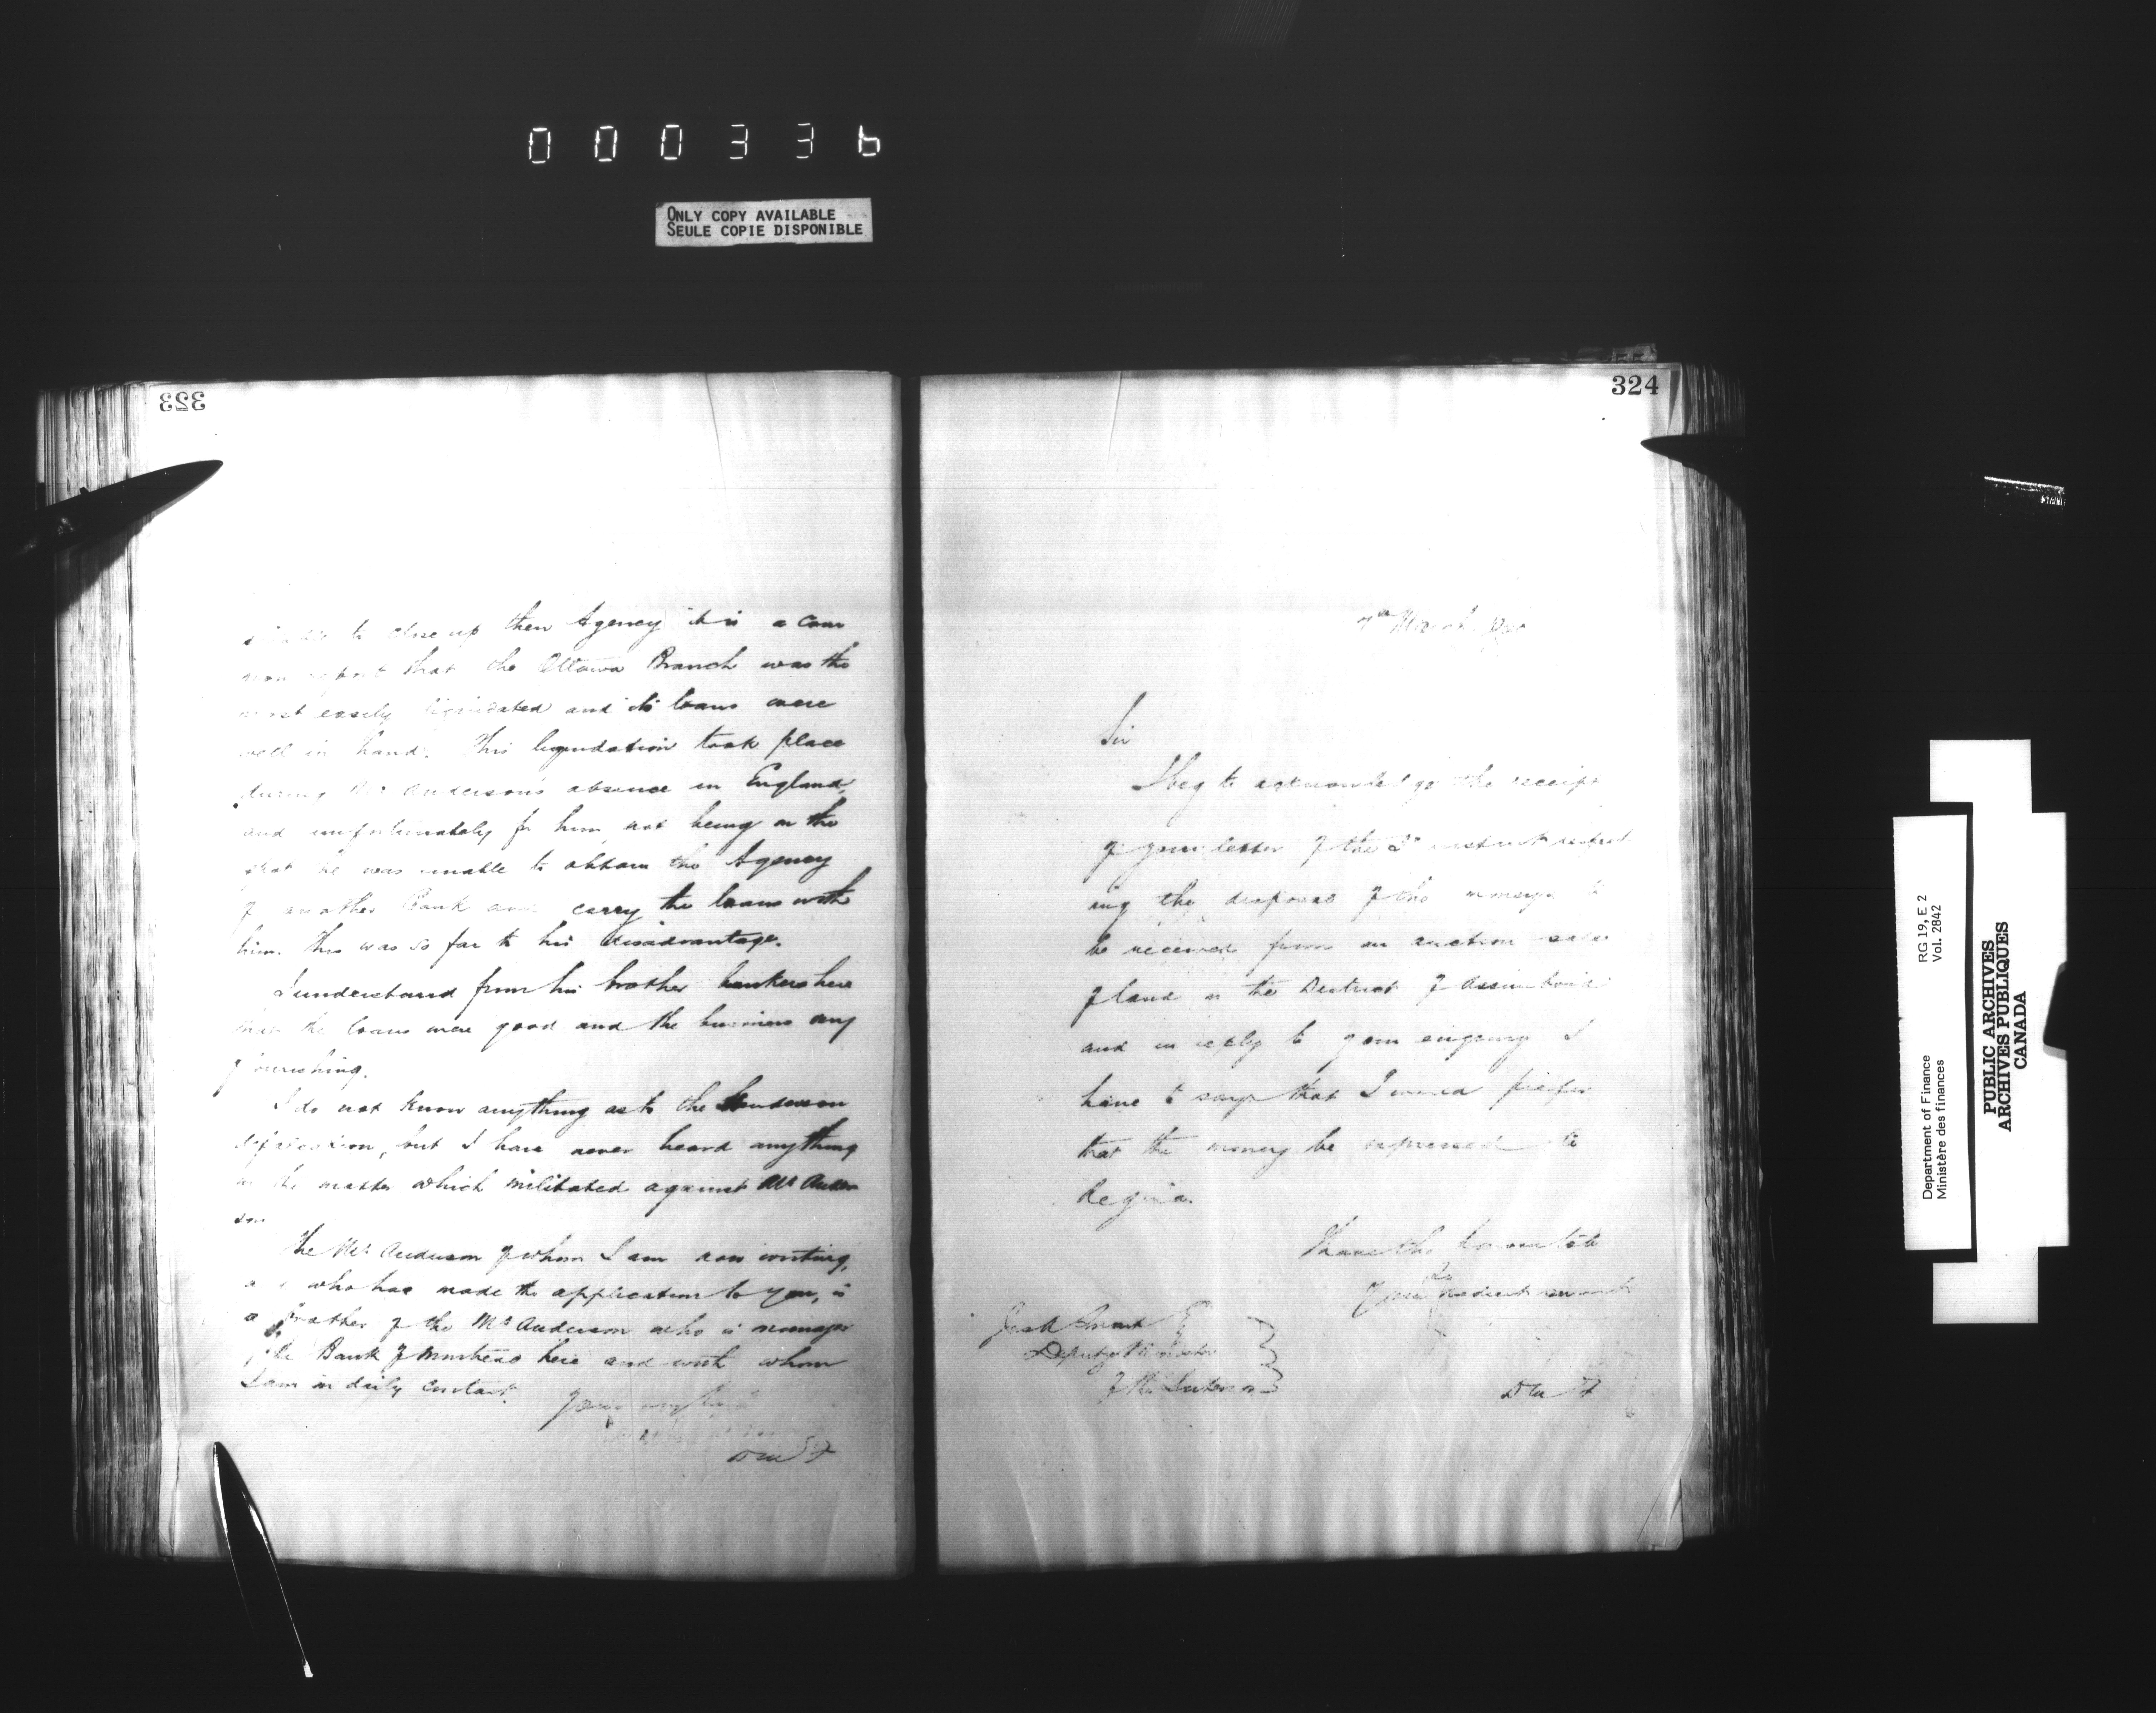 000336
ONLY COPY AVAILABLE
SEULE COPIE DISPONIBLE
323
to close up their Agency it is a com
mon report that the Ottawa Branch was the
most easily liquidated and its loans were
well in hand. This liquidation took place
during Mr Anderson's absence in England,
and unfortunately for him not being on the
spot he was unable to obtain the Agency
of another Bank and carry the loans with
him. This was so far to his disadvantage.
I understand from his brother bankers here
that the loans were good and the business any
flourishing.
I do not know anything as to the
but I have never heard anything
in the matter which militated against Mr Ander
son
The Mr Anderson of whom I am now writing,
and who has made the application to you, is
a brother of the Mr Anderson who is manager
of the Bank of Montreal here and with whom
I am in daily contact.
Yours
D M F
324
7th March
Sir
I beg to acknowledge the receipt
of your letter of the instant respect
ing the disposal of the moneys to
be received from an auction sale
of land in the District of Assiniboia
and in reply to your enquiry I
have to say that I would prefer
that the money be expressed to
Regina.
I have the honour to be
Sir
Your obedient servant
Jas A Smart
Deputy Minister
of the Interior
D M F
Department of Finance RG 19, E 2
Ministère des finances Vol. 2842
PUBLIC ARCHIVES
ARCHIVES PUBLIQUES
CANADA